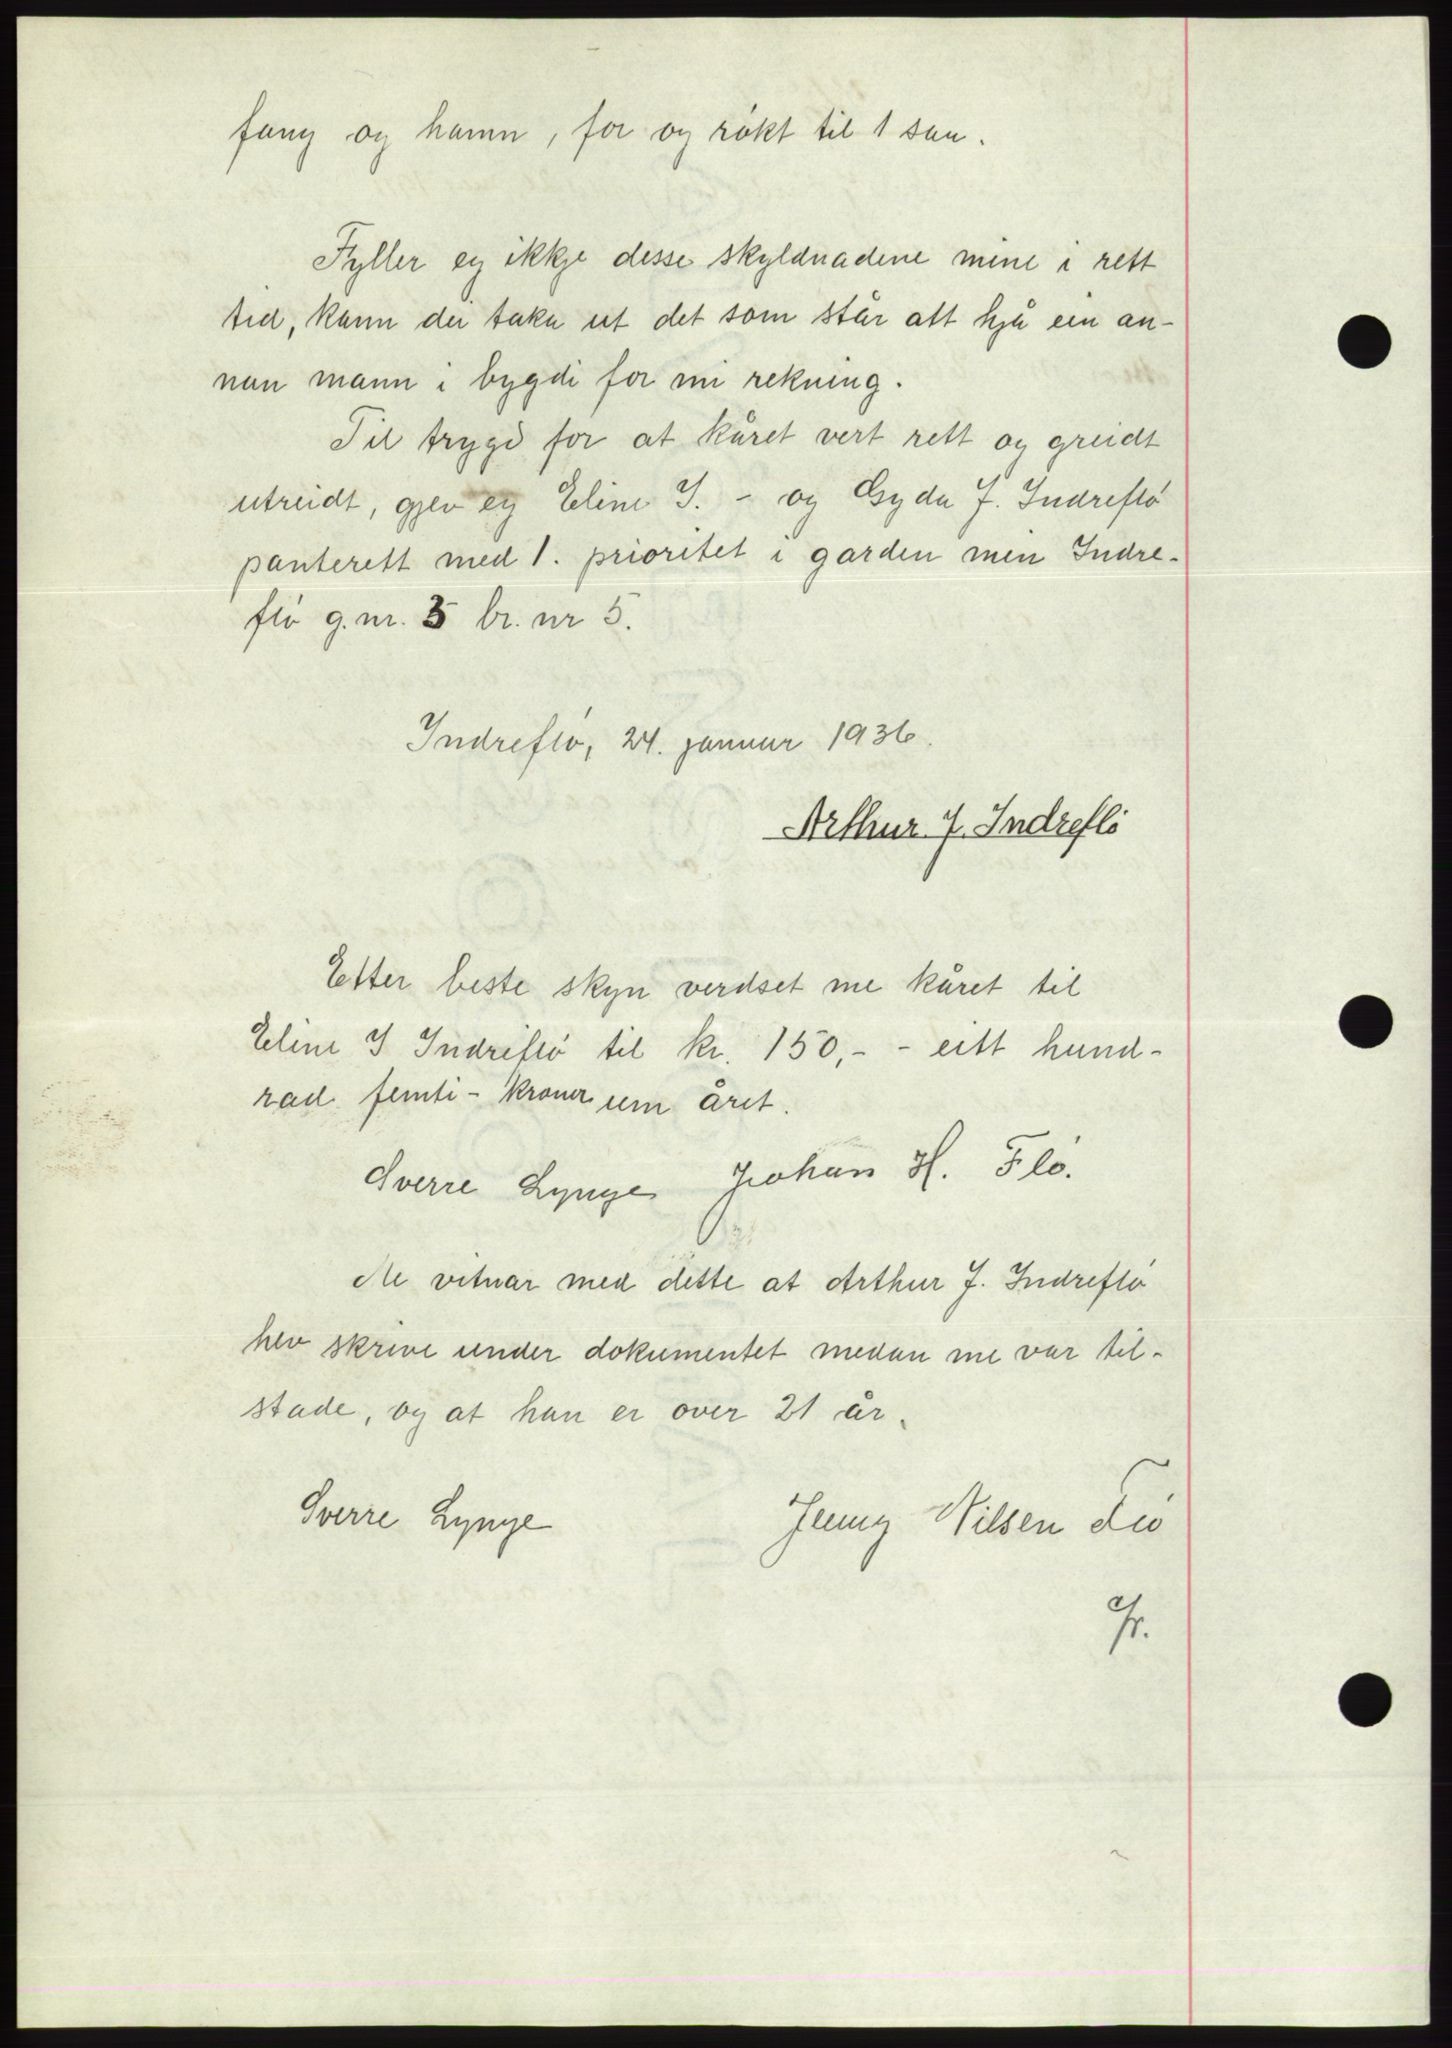 fang og hamn, for og rökt til 1 sau.
Fyller eg ikkje desse skyldnadene mine i rett
tid, kann dei taka ut det som står att hjå ein an-
nan mann i bygdi for mi rekning.
Til trygd for at kåret vert rett og greidt
utreidt, gjev eg Eline J. - og Gyda J. Indreflö
panterett med 1. prioritet i garden min Indre-
flö g.nr. 5 br. nr 5.
Indreflö, 24. januar 1936.
Arthur J. Indreflö
Etter beste skyn verdset me kåret til
Eline J Indreflö til kr. 150,- - eitt hund-
rad femti - kroner um året.
Sverre Lynge Johan H. Flö.
Me vitnar med dette at Arthur J. Indreflö
hev skrive under dokumentet medan me var til-
stade, og at han er over 21 år.
Sverre Lynge Jenny Nilsen Flö